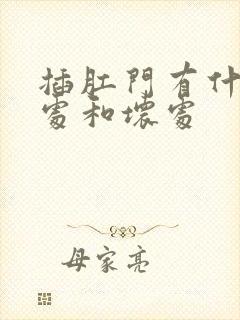 插肛門有什
處和壞處
母家亮